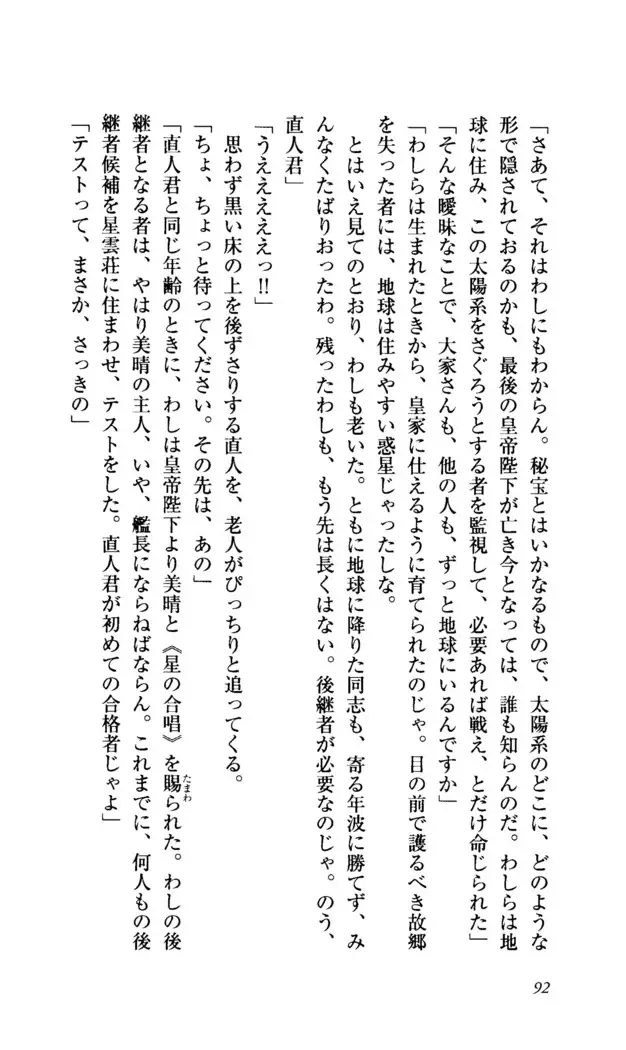 「さあて、それはわしにもわからん。秘宝とはいかなるもので、太陽系のどこに、どのような
形で隠されておるのかも、最後の皇帝陛下が亡き今となっては、誰も知らんのだ。わしらは地
球に住み、この太陽系をさぐろうとする者を監視して、必要あれば戦え、とだけ命じられた」
「そんな曖昧なことで、大家さんも、他の人も、ずっと地球にいるんですか」
「わしらは生まれたときから、皇家に仕えるように育てられたのじゃ。目の前で護るべき故郷
を失った者には、地球は住みやすい惑星じゃったしな。
とはいえ見てのとおり、わしも老いた。ともに地球に降りた同志も、寄る年波に勝てず、み
んなくたばりおったわ。残ったわしも、もう先は長くはない。後継者が必要なのじゃ。のう、
直人君」
「うええええええっ!!」
思わず黒い床の上を後ずさりする直人を、老人がぴっちりと追ってくる。
「ちょ、ちょっと待ってください。その先は、あの」
「直人君と同じ年齢のときに、わしは皇帝陛下より美晴と《星の合唱》を賜られた。わしの後
継者となる者は、やはり美晴の主人、いや、艦長にならねばならん。これまでに、何人もの後
継者候補を星雲荘に住まわせ、テストをした。直人君が初めての合格者じゃよ」
「テストって、まさか、さっきの」
たまわ
92